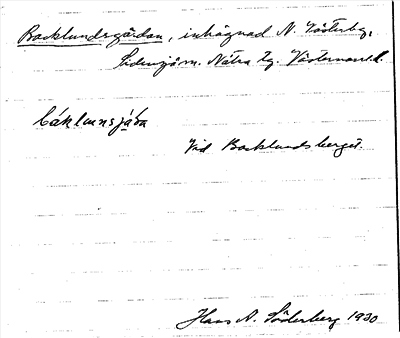 Backlundsgärdan, inhägnad N. Västerbg,
Sidensjö sn. Nätra tg. Västernorrl.
báklunsjäɷ̀a
Vid Backlundsberget.
Hans A. Söderberg 1930